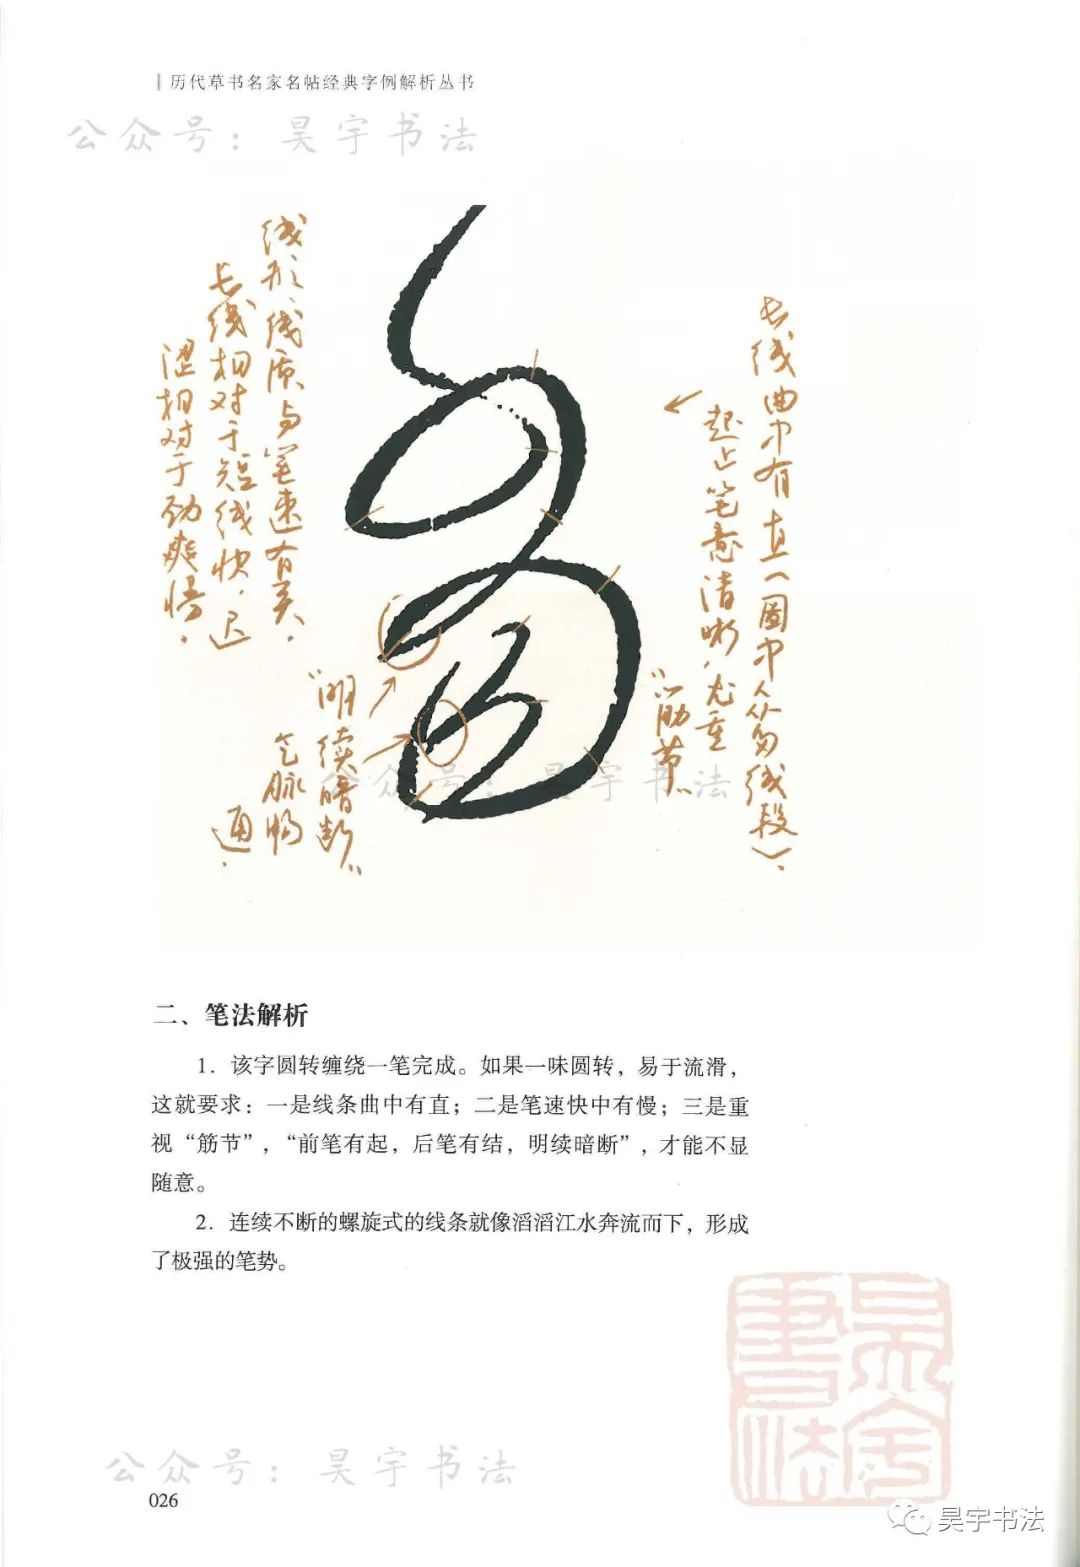 历代草书名家名帖经典字例解析丛书
公众号：昊宇书法
长线曲中有直（图中从笏线段）。
起止笔意清晰，尤重
“筋节”
线形、线质与笔速有关。
长线相对于短线快，迟
涩相对于劲爽慢。
“明续暗断”
气脉畅
通。
公众号：昊宇书法
二、笔法解析
1．该字圆转缠绕一笔完成。如果一味圆转，易于流滑，
这就要求：一是线条曲中有直；二是笔速快中有慢；三是重
视“筋节”，“前笔有起，后笔有结，明续暗断”，才能不显
随意。
2．连续不断的螺旋式的线条就像滔滔江水奔流而下，形成
了极强的笔势。
昊宇書法
公众号：昊宇书法
026
昊宇书法